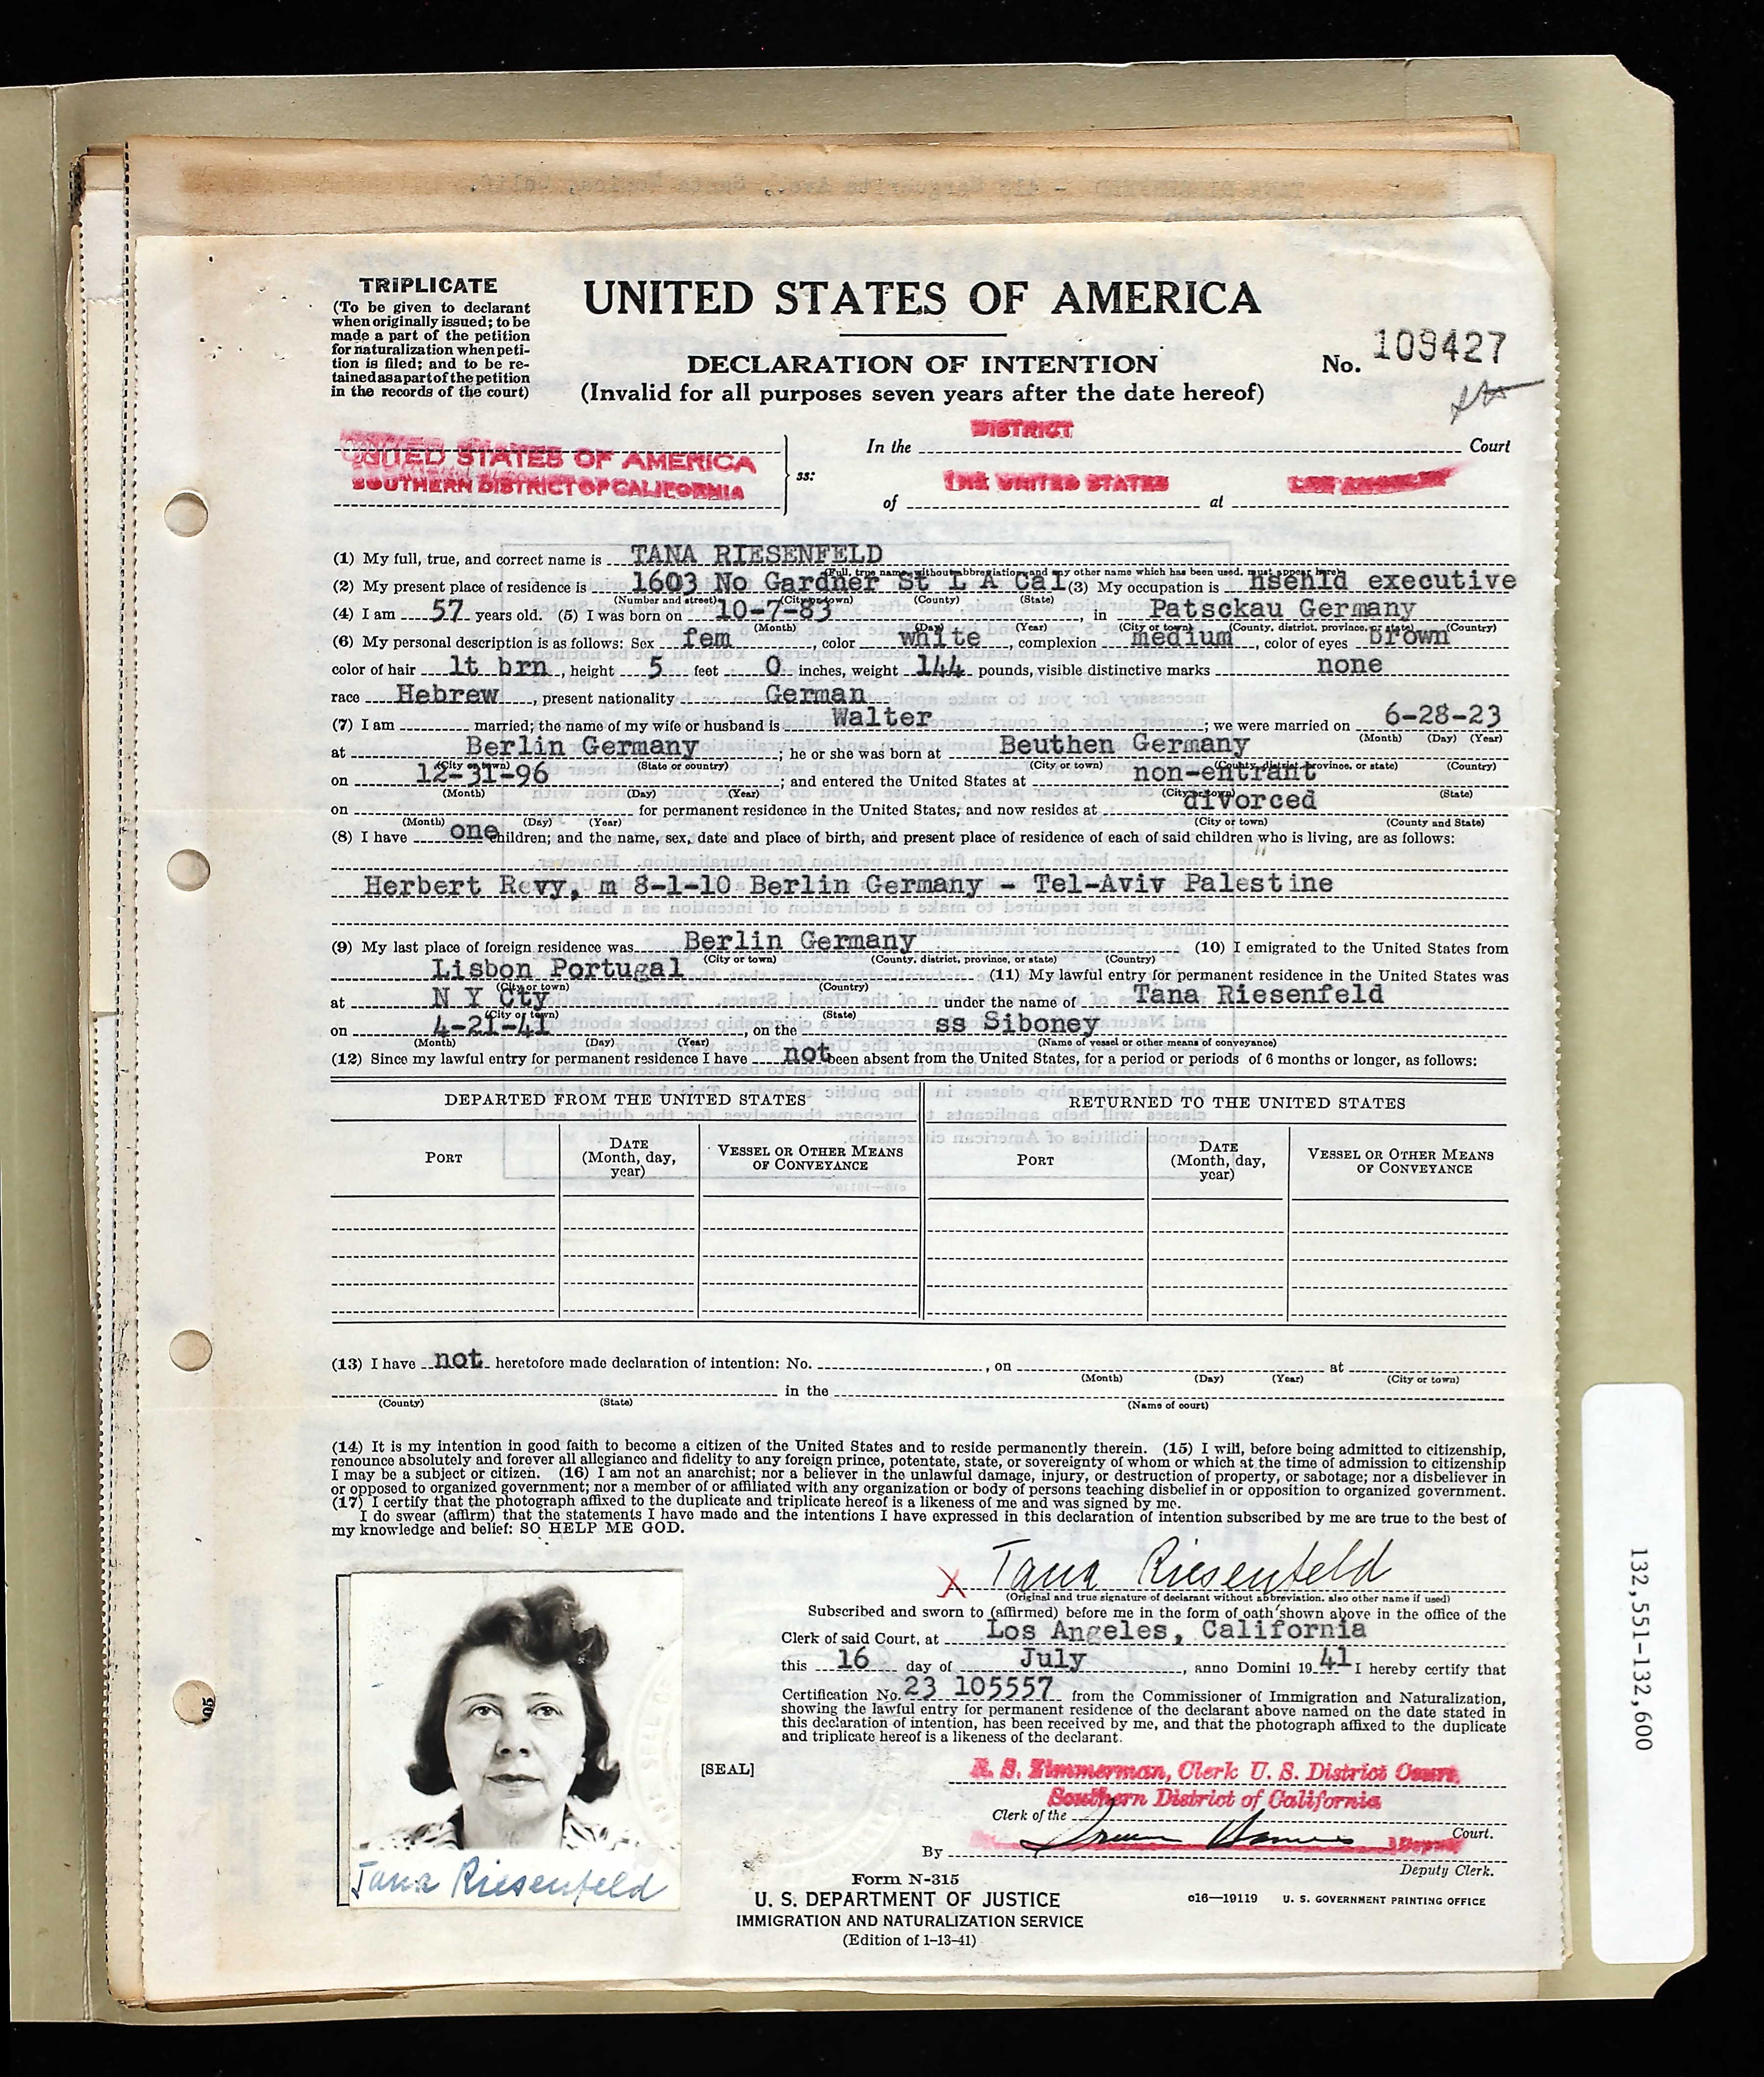 TRIPLICATE
(To be given to declarant
when originally issued; to be
made a part of the petition
for naturalization when peti-
tion is filed; and to be re-
tained as a part of the petition
in the records of the court)
UNITED STATES OF AMERICA
DECLARATION OF INTENTION
(Invalid for all purposes seven years after the date hereof)
No. 109427
UNITED STATES OF AMERICA
SOUTHERN DISTRICT OF CALIFORNIA
ss:
In the DISTRICT Court
of THE UNITED STATES at LOS ANGELES
(1) My full, true, and correct name is TANA RIESENFELD
(Full, true name, without abbreviation, and any other name which has been used, must appear here)
(2) My present place of residence is 1603 No Gardner St L A Cal (3) My occupation is hsehld executive
(Number and street) (City or town) (County) (State)
(4) I am 57 years old. (5) I was born on 10-7-83, in Patsckau Germany
(Month) (Day) (Year) (City or town) (County, district, province, or state) (Country)
(6) My personal description is as follows: Sex fem, color white, complexion medium, color of eyes brown
color of hair lt brn, height 5 feet 0 inches, weight 144 pounds, visible distinctive marks none
race Hebrew, present nationality German
(7) I am married; the name of my wife or husband is Walter; we were married on 6-28-23
(Month) (Day) (Year)
at Berlin Germany; he or she was born at Beuthen Germany
(City or town) (State or country) (City or town) (County, district, province, or state) (Country)
on 12-31-96, and entered the United States at non-entrant
(Month) (Day) (Year) (City or town) (State)
on for permanent residence in the United States, and now resides at divorced
(Month) (Day) (Year) (City or town) (County and State)
(8) I have one children; and the name, sex, date and place of birth, and present place of residence of each of said children who is living, are as follows:
Herbert Revy, m 8-1-10 Berlin Germany - Tel-Aviv Palestine
(9) My last place of foreign residence was Berlin Germany (10) I emigrated to the United States from
(City or town) (County, district, province, or state) (Country)
Lisbon Portugal (11) My lawful entry for permanent residence in the United States was
(City or town) (Country)
at N Y Cty under the name of Tana Riesenfeld
(City or town) (State)
on 4-21-41, on the ss Siboney
(Month) (Day) (Year) (Name of vessel or other means of conveyance)
(12) Since my lawful entry for permanent residence I have not been absent from the United States, for a period or periods of 6 months or longer, as follows:
DEPARTED FROM THE UNITED STATES RETURNED TO THE UNITED STATES
PORT DATE (Month, day, year) VESSEL OR OTHER MEANS OF CONVEYANCE PORT DATE (Month, day, year) VESSEL OR OTHER MEANS OF CONVEYANCE
(13) I have not heretofore made declaration of intention: No. , on at
(Month) (Day) (Year) (City or town)
in the
(County) (State) (Name of court)
(14) It is my intention in good faith to become a citizen of the United States and to reside permanently therein. (15) I will, before being admitted to citizenship,
renounce absolutely and forever all allegiance and fidelity to any foreign prince, potentate, state, or sovereignty of whom or which at the time of admission to citizenship
I may be a subject or citizen. (16) I am not an anarchist; nor a believer in the unlawful damage, injury, or destruction of property, or sabotage; nor a disbeliever in
or opposed to organized government; nor a member of or affiliated with any organization or body of persons teaching disbelief in or opposition to organized government.
(17) I certify that the photograph affixed to the duplicate and triplicate hereof is a likeness of me and was signed by me.
I do swear (affirm) that the statements I have made and the intentions I have expressed in this declaration of intention subscribed by me are true to the best of
my knowledge and belief: SO HELP ME GOD.
X Tana Riesenfeld
(Original and true signature of declarant without abbreviation, also other name if used)
Subscribed and sworn to (affirmed) before me in the form of oath shown above in the office of the
Clerk of said Court, at Los Angeles, California
this 16 day of July, anno Domini 1941 I hereby certify that
Certification No. 23 105557 from the Commissioner of Immigration and Naturalization,
showing the lawful entry for permanent residence of the declarant above named on the date stated in
this declaration of intention, has been received by me, and that the photograph affixed to the duplicate
and triplicate hereof is a likeness of the declarant.
[SEAL]
R. S. Zimmerman, Clerk U. S. District Court
Southern District of California
Clerk of the Court.
By
Deputy Clerk.
Tana Riesenfeld
Form N-315
U. S. DEPARTMENT OF JUSTICE
IMMIGRATION AND NATURALIZATION SERVICE
(Edition of 1-13-41)
c16—19119 U. S. GOVERNMENT PRINTING OFFICE
132,551-132,600